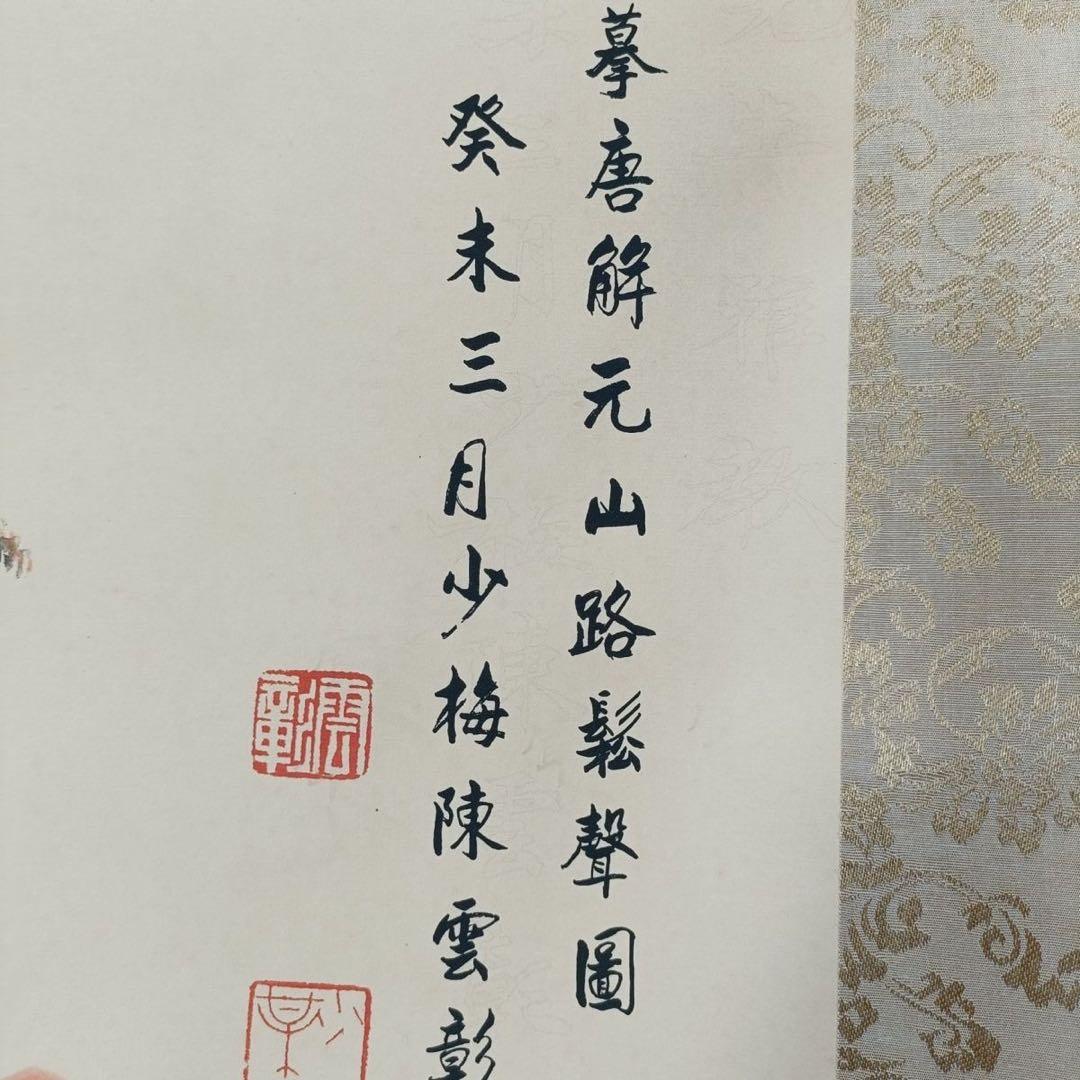 摹唐解元山路鬆聲圖
癸未三月少梅陳雲彰
雲彰
少某